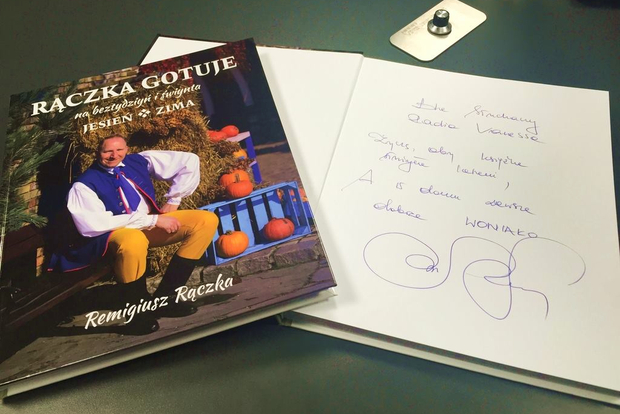 RĄCZKA GOTUJE
na beztydziyń i świynta
JESIEŃ ❖ ZIMA
Remigiusz Rączka
Dla Słuchaczy
Radia Vanessa
Życzę, aby książka
służyła
A w domu zawsze
dobrze WONIAŁO